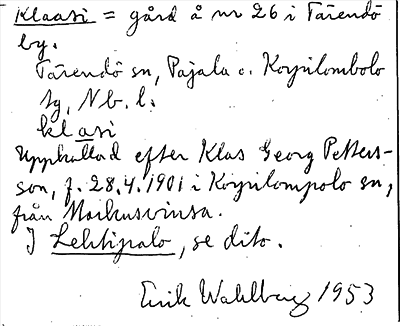 Klaasi = gård å nr 26 i Tärendö
by.
Tärendö sn, Pajala o. Korpilombolo
tg, Nb. l.
klasi
Uppkallad efter Klas Georg Petters-
son, f. 28.4.1901 i Korpilompolo sn,
från Markusvinsa.
J Lehtipalo, se dito.
Erik Wahlberg 1953